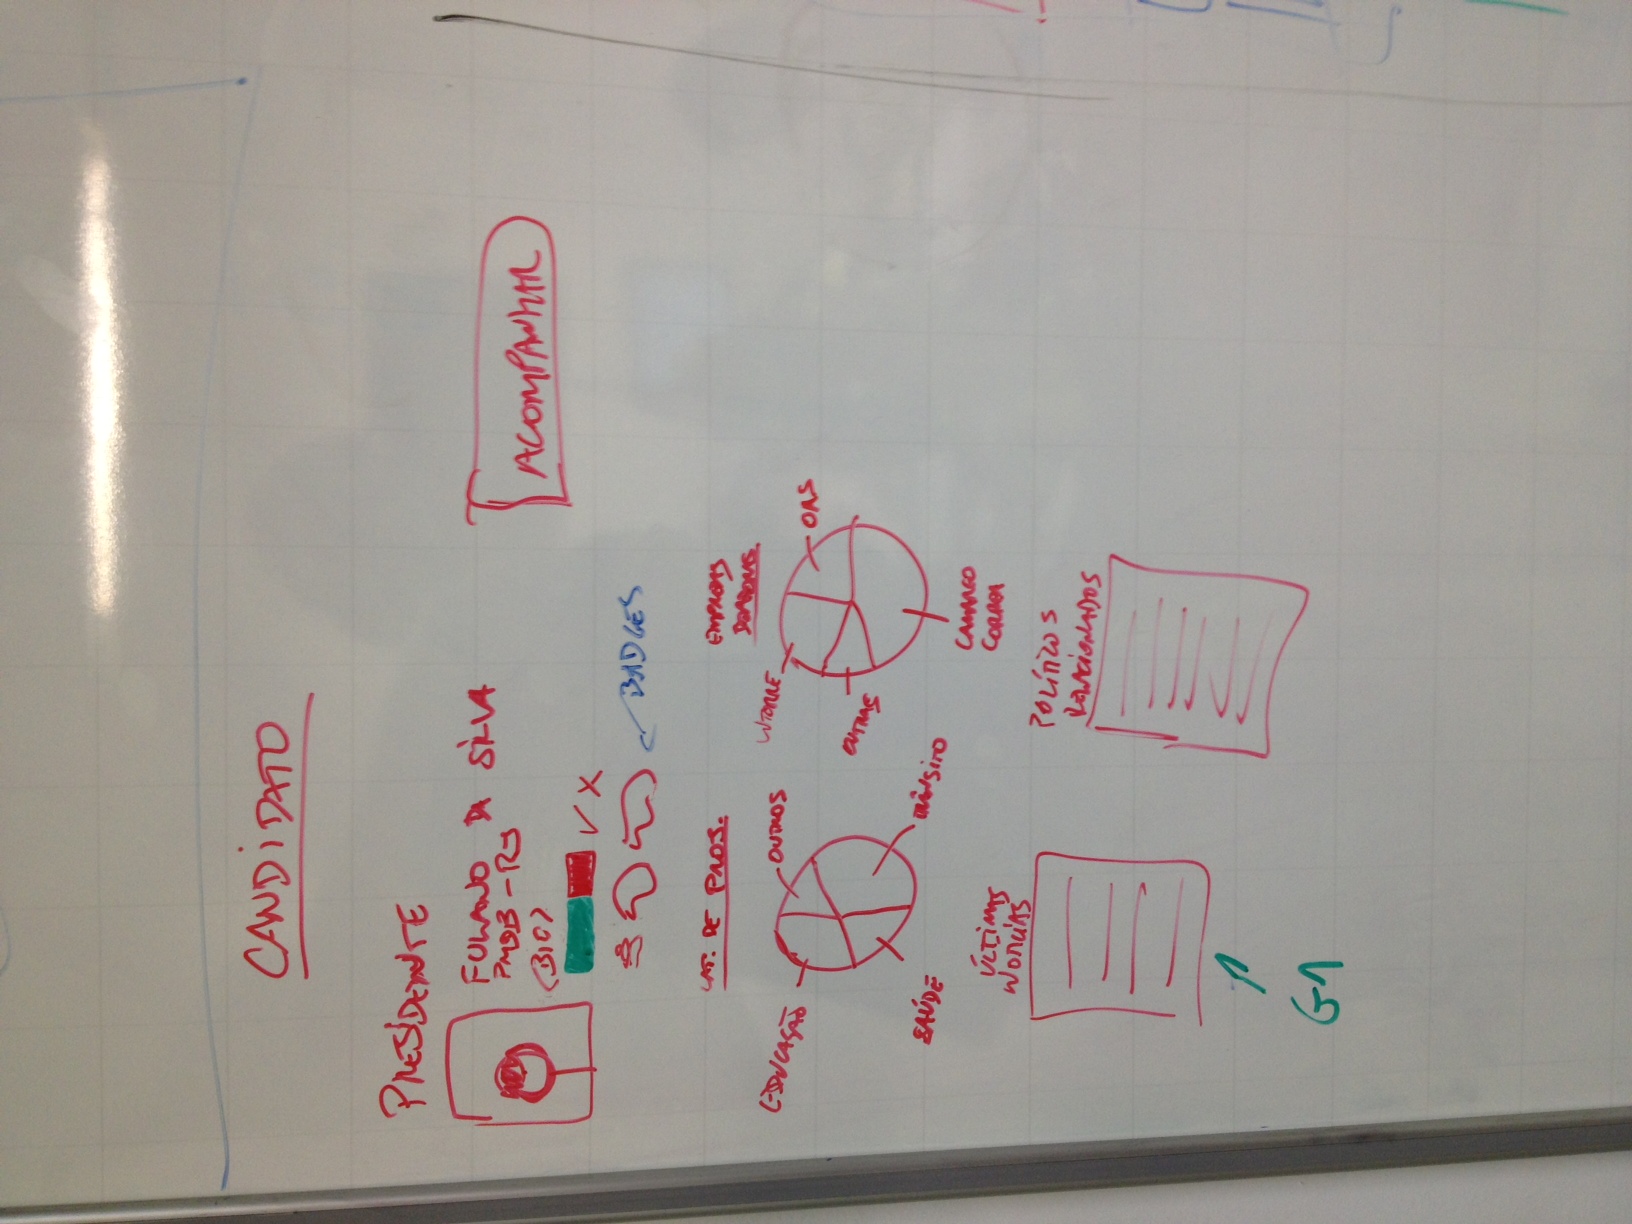 CANDIDATO
PRESIDENTE
FULANO DA SILVA
PMDB - RJ
<BIO>
ACOMPANHAR
BADGES
CAT. DE PROJ.
EDUCAÇÃO
OUTROS
SAÚDE
TRÂNSITO
EMPRESAS
DOADORAS
WTORRE
OAS
OUTRAS
CAMARGO
CORREA
ÚLTIMAS
NOTÍCIAS
G1
POLÍTICOS
RELACIONADOS